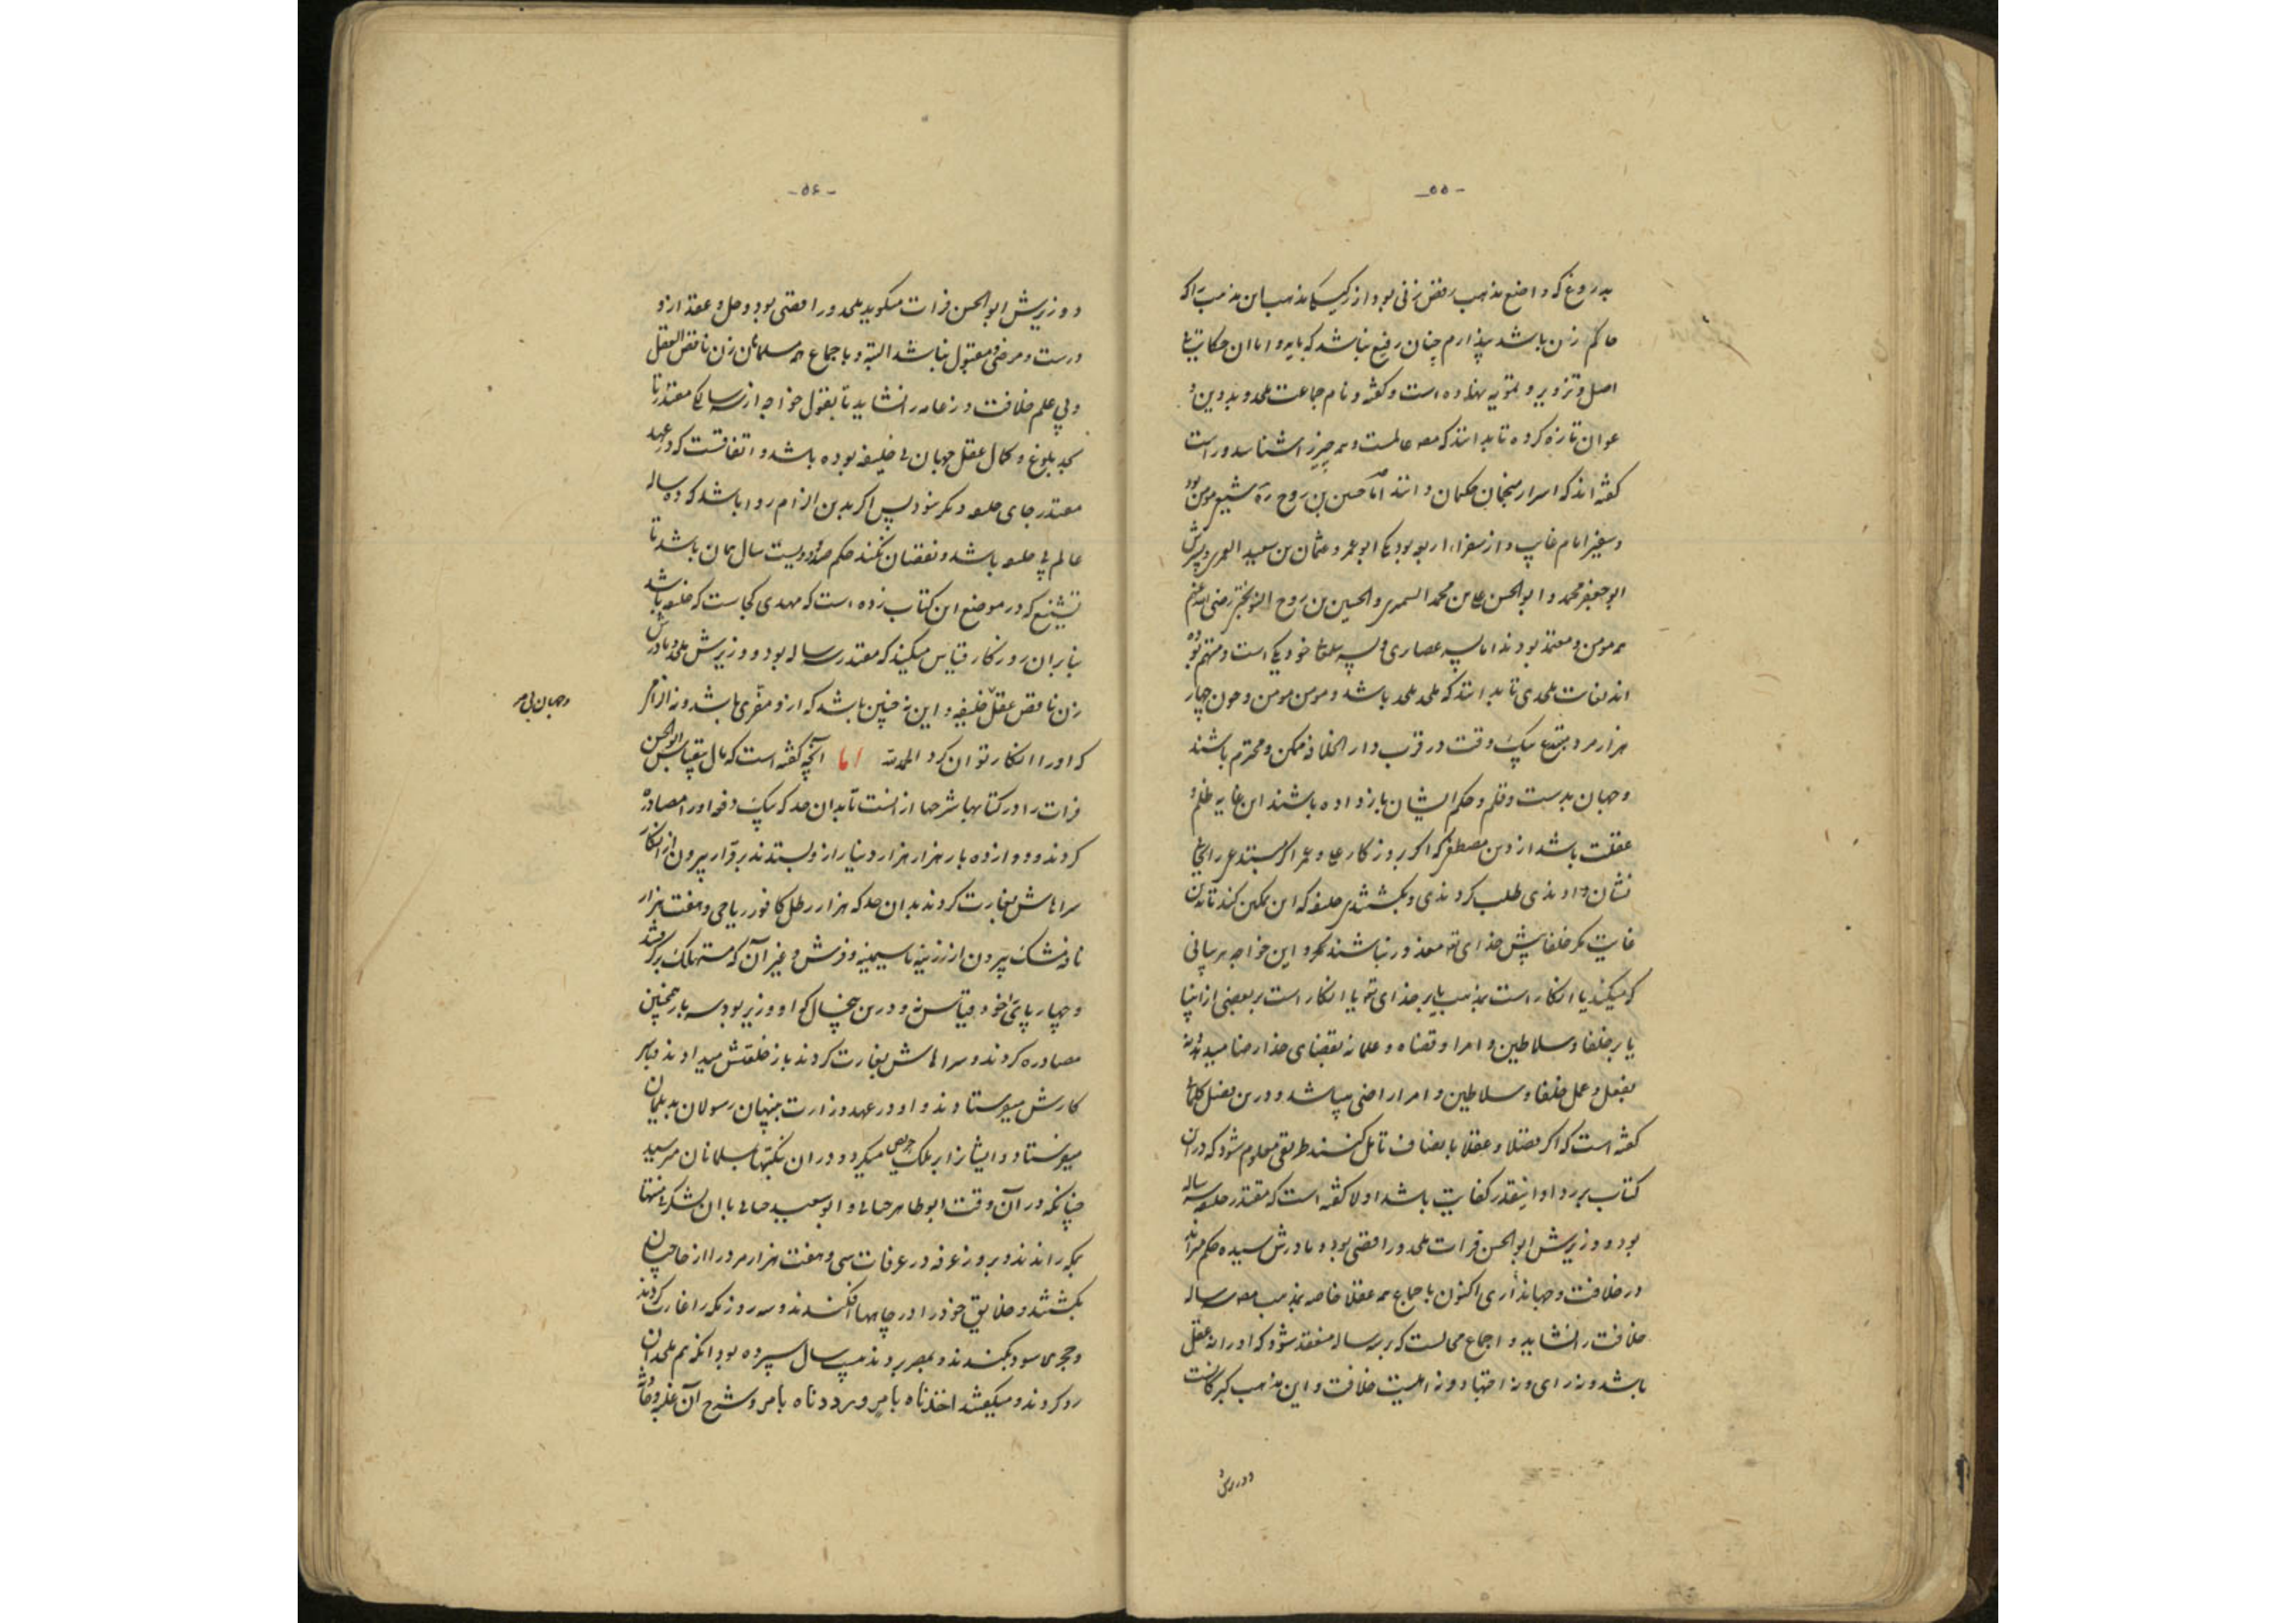 -۵۵-
بدروغ که واضع مذهب رفض زنی بود از
حاکم زن باشد پندارم چنان رفیع نباشد که پایه و اما آن حکایت
اصل و تزویر و تمویه نهاده است و گفته و نام جماعت ملحد و بددین
عوان تازه کرده تا بدانند که مصنف عالمست و همه چیز را شناسد و راست
گفته اند که اسرار منجمان حکیمان دانند اما حسین بن روح ره شیعی مومن بود
و سفیر امام غایب و از سفراء اربعه بود یکی ابو عمرو عثمان بن سعید العمری و پسرش
ابو جعفر محمد و ابو الحسن علی بن محمد السمری و الحسین بن روح النوبختی رضی الله عنهم
همه مومن و معتمد بودند اما پسر عصاری و پسر خود یکی است و متهم بوده
اند بغایت ملحدی تا بدانند که ملحد ملحد باشد و مومن مومن و چون چهار
هزار مرد مبتدع بیک وقت در قرب دار الخلافه ممکن و محترم باشند
و جهان بدست و قلم و حکم ایشان باز داده باشند این غایة ظلم و
غفلت باشد از دین مصطفی که اگر بروزگار علی و عمر اگر مبتدعی را بجایی
نشان دادندی طلب کردندی و بکشتندی خلیفه که این تمکین کند تا بدان
غایت مگر خلفا پیش خدای تع معذور نباشند و این خواجه بر پانی
که میکند یا انکار است بمذهب یا بر خدای تع یا انکار است بر بعضی از انبیا
یا بر خلفا و سلاطین و امرا و قضاة و علما نه بقضای خدا رضا میدهد نه
بفعل و عمل خلفا و سلاطین و امرا راضی میباشد و درین فصل کلماتی
گفته است که اگر فضلا و عقلا بانصاف تامل کنند طریقی معلوم شود که در آن
کتاب برو رد او اینقدر کفایت باشد اولا گفته است که مقتدر خلیفه سه ساله
بود و وزیرش ابو الحسن فرات ملحد و رافضی بود و مادرش سیده حکم میراند
در خلافت و جهانداری اکنون باجماع همه عقلا خاصه بمذهب مصنف سه ساله
خلافت را نشاید و اجماع محالست که بر سه ساله منعقد شود که او را نه عقل
باشد و نه رای و نه اجتهاد و نه اهلیت خلافت و این مذهب گبرکانست
و وزیرش
-۵۶-
و وزیرش ابو الحسن فرات میگوید ملحد و رافضی بود و حل و عقد ازو
درست و مرضی و مقبول نباشد البته و باجماع همه مسلمانان زن ناقص العقل
و بی علم خلافت و زعامه را نشاید تا بقول خواجه از سه سالگی مقتدر تا
بحد بلوغ و کمال عقل جهان بی خلیفه بوده باشد و اتفاقست که در عهد
مقتدر جای خلیفه دیگر نبود پس اگر بدین الزام روا باشد که ده ساله
عالم بی خلیفه باشد و نقصان نکند حکم صد و دویست سال همان باشد تا
تشنیع که در موضع این کتاب زده است که مهدی کجاست که خلیفه باشد
بنا بر آن روزگار قیاس میکند که مقتدر سه ساله بود و وزیرش ملحد و مادرش
زن ناقص عقل خلیفه و این نه چنین باشد که ازو مفری باشد و نه الزامی
که او را انکار توان کرد الحمد لله اما آنچه گفته است که مال بیقیاس ابو الحسن
فرات را در کتابها شرحها از نیست تا بدان حد که یک دفعه او را مصادره
کردند و دوازده بار هزار هزار دینار ازو بستدند برقرار بیرون از انکار
سراهاش بغارت کردند بدان حد که هزار رطل کافور ریاحی و هفت هزار
نافه مشک بیرون از زرینه تا سیمینه و فرش و غیر آن که مستهلک برگرفتند
و چهارپای خود قیاس نه و درین پنج سال که او وزیر بود سه بار همچنین
مصادره کردند و سراهاش بغارت کردند باز خلعتش میدادند و باسر
کارش میفرستادند و او در عهد وزارت پنهان رسولان بدیلمان
میفرستاد و ایشانرا بر ملک حریص میکرد و در آن نکبتها بمسلمانان میرسید
چنانکه در آن وقت ابو طاهر جنابی و ابو سعید جنابی با آن لشکر بی منتها
بمکه راندند و بروز عرفه در عرفات سی و هفت هزار مرد را از حاجیان
بکشتند و خلایق خود را در چاهها افکندند و سه روز مکه را غارت کردند
و حجر اسود بکندند و بمصر بردند سال سپرده بود آنگه هم ملحدان
رد کردند و میگفتند اخذناه بامر و رددناه بامر و شرح آن
و جهان بی سر